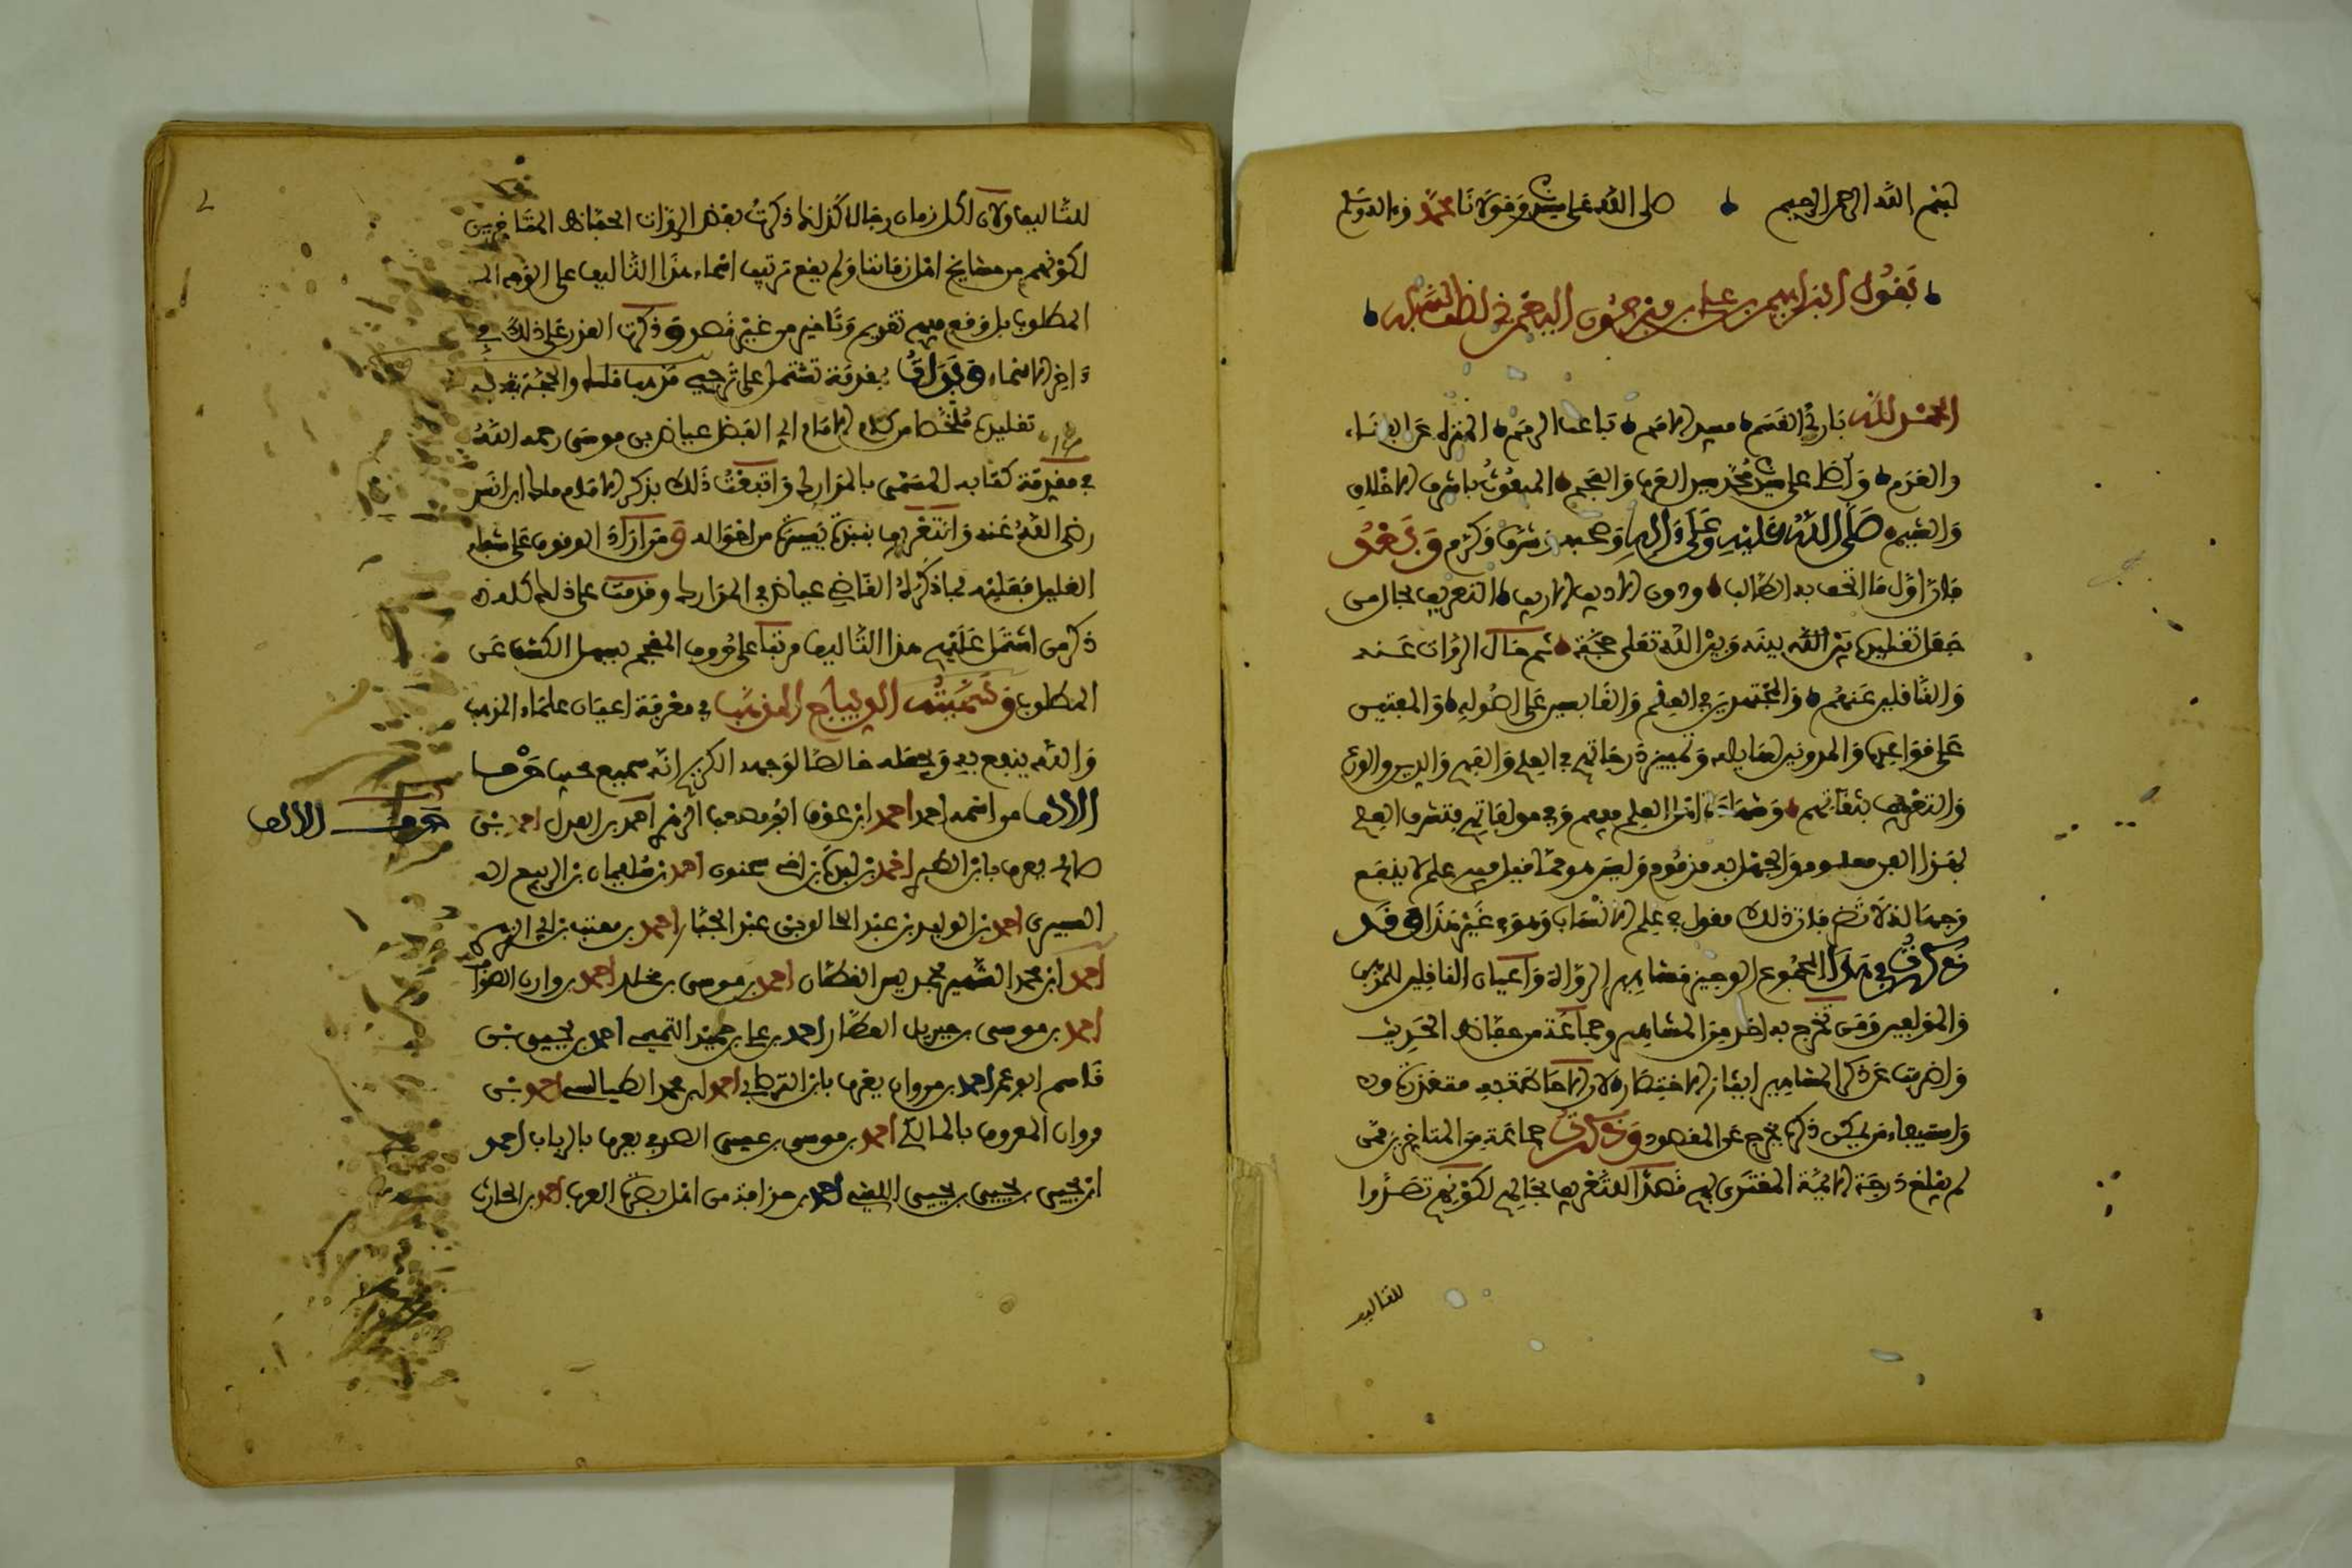 بسم الله الرحمن الرحيم صلى الله على سيدنا ومولانا محمد وءاله وسلم
يقول ابراهيم بن علي بن فرحون اليعمري لطف الله به
الحمد لله بارئ النسم مميت الامم باعث الرمم المنزه عن الفناء
والعدم وصلى الله على سيدنا محمد سيد العرب والعجم المبعوث باشرف الاخلاق
والشيم صلى الله عليه وعلى ءاله وصحبه وشرف وكرم وبعد
فان اولى ما اتحف به الطالب ودون الاديب الاريب التعريف بحال من
جعل تقليده بين الله بينه وبين الله تعلى حجة ثم حال الرواة عنه
والناقلين عنهم والمجتهدين في العلم والقائسين على اصوله والمفتين
على قواعده والمدونين لمسايله وتمييز درجاتهم في العلم والفهم والدين والورع
والتعريف بثقاتهم وشهادة اهل العلم فيهم وفي مولفاتهم فتشرف العلم
بهذا الفن معلوم والجهل به مذموم وليس هو مما قيل فيه علم لا ينفع
وجهالة لا تضر فان ذلك مقول في علم الانساب وهو في غير هذا وقد
ذكرت في هذا المجموع الوجيز مشاهير الرواة واعيان الناقلين للمذهب
والمولفين ومن تخرج به احد من المشاهير وجماعة من حفاظ الحديث
واضربت عن ذكر غير المشاهير ايثارا للاختصار ولان الاحاطة بهم متعذرة
واستيعاب من يمكن ذكره يخرج عن المقصود وذكرت جماعة من المتاخرين ممن
لم يبلغ درجة الايمة المقتدى بهم قصدا للتعريف بحالهم لكونهم تصدوا
للتاليف
للتاليف ولان لكل زمان رجالا كذلك ذكرت بعض الرواة الحفاظ المتاخرين
لكونهم من مشايخ اهل زماننا ولم يقع ترتيب اسماء هذا التاليف على الوجه
المطلوب بل وقع فيهم تقديم وتاخير من غير قصد وذكرت العذر على ذلك في
ءاخر الاسماء وبدات بمقدمة تشتمل على ترجيح مذهب مالك والحجة في
تقليده ملخصا من كلام الامام ابي الفضل عياض بن موسى رحمه الله
في مقدمة كتابه المسمى بالمدارك واتبعت ذلك بذكر الامام مالك ابن انس
رضي الله عنه والتعريف بنبذة يسيرة من احواله ومن اراد الوقوف على شفاء
الغليل فعليه بما ذكره القاضي عياض في المدارك وقدمت على ذلك كله
ذكر من اشتمل عليه هذا التاليف مرتبا على حروف المعجم ليسهل الكشف عن
المطلوب وسميته الديباج المذهب في معرفة اعيان علماء المذهب
والله ينفع به ويجعله خالصا لوجهه الكريم انه سميع مجيب حرف
الالف من اسمه احمد احمد ابن عوف ابو مصعب الزهري احمد بن المعذل احمد بن
حرف الالف
صالح يعرف بابن الطبري احمد بن لبدة بن اخي سحنون احمد بن سليمان بن الربيع
البيري احمد بن الوليد بن عبد الخالق بن عبد الجبار احمد بن معتب بن ابي الازهر
احمد ابن محمد الشهير بحمديس القطان احمد بن موسى بن مخلد احمد بن وازن الصواف
احمد بن موسى بن جبريل العطار احمد بن علي بن حميد التميمي احمد بن يحيى بن
قاسم ابو عمر احمد بن مروان يعرف بابن احمد بن محمد الطيالسي احمد بن
مروان المعروف بالمالكي احمد بن موسى بن عيسى الصدفي يعرف بالزيات احمد
ابن يحيى بن يحيى بن يحيى الليثي احمد بن حذافة من اهل بصرة العرب احمد بن الحارث